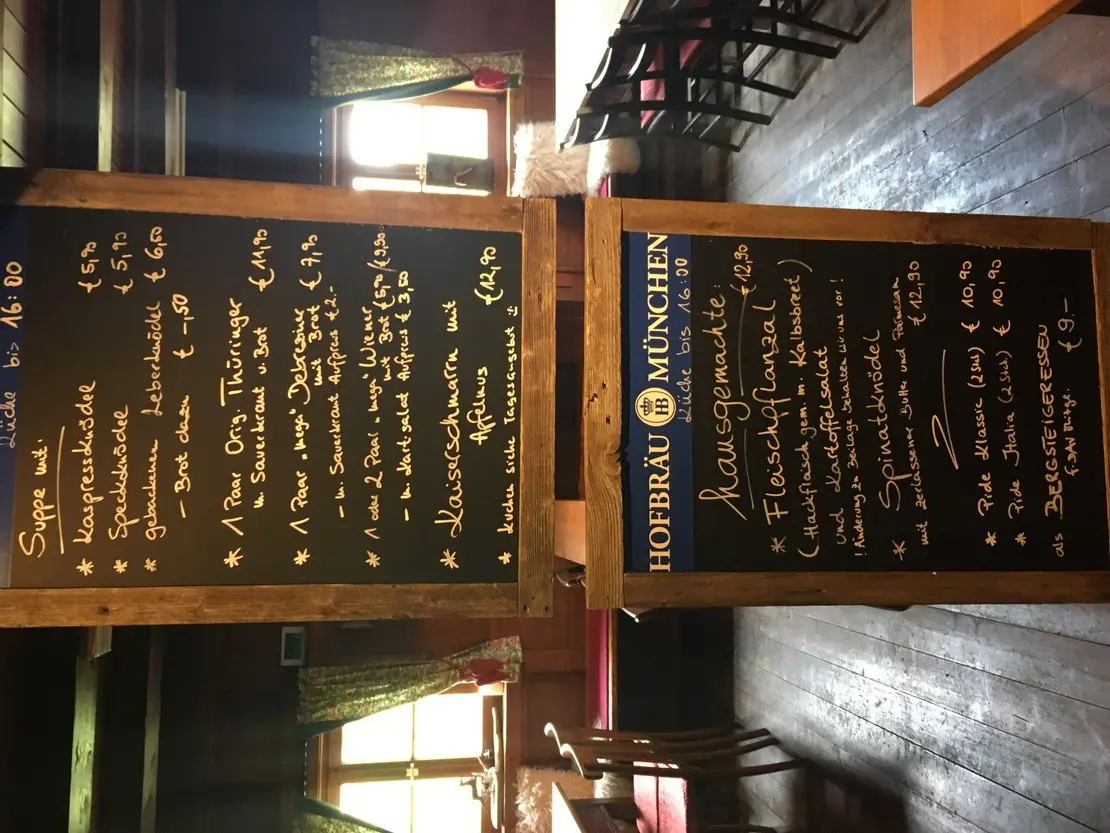 Küche bis 16:00
Suppe mit:
* Kaspressknödel €5,90
* Speckknödel € 5,90
* gebackener Leberknödel € 6,50
- Brot dazu € -,50
* 1 Paar Orig. Thüringer
m. Sauerkraut u. Brot €11,90
* 1 Paar "Mega" Debreziner
mit Brot € 7,90
- m. Sauerkraut Aufpreis €2.-
* 1 oder 2 Paar "Mega" Wiener
mit Brot €5,90/9,90
- m. Kart.salat Aufpreis € 3,50
* Kaiserschmarrn mit
Apfelmus €12,90
* Kuchen siehe Tagesangebot
HOFBRÄU HB MÜNCHEN
Küche bis 16:00
hausgemachte:
* Fleischpflanzal €12,90
(Hackfleisch gem. m. Kalbsbreet)
und Kartoffelsalat
! Änderung zu Beilage behalten wir uns vor!
* Spinatknödel
mit zerlassener Butter und Parmesan
€ 12,90
* Pide Klassic (2 Stck) € 10,90
* Pide Italia (2 Stck) € 10,90
als BERGSTEIGERESSEN
€ 9.-